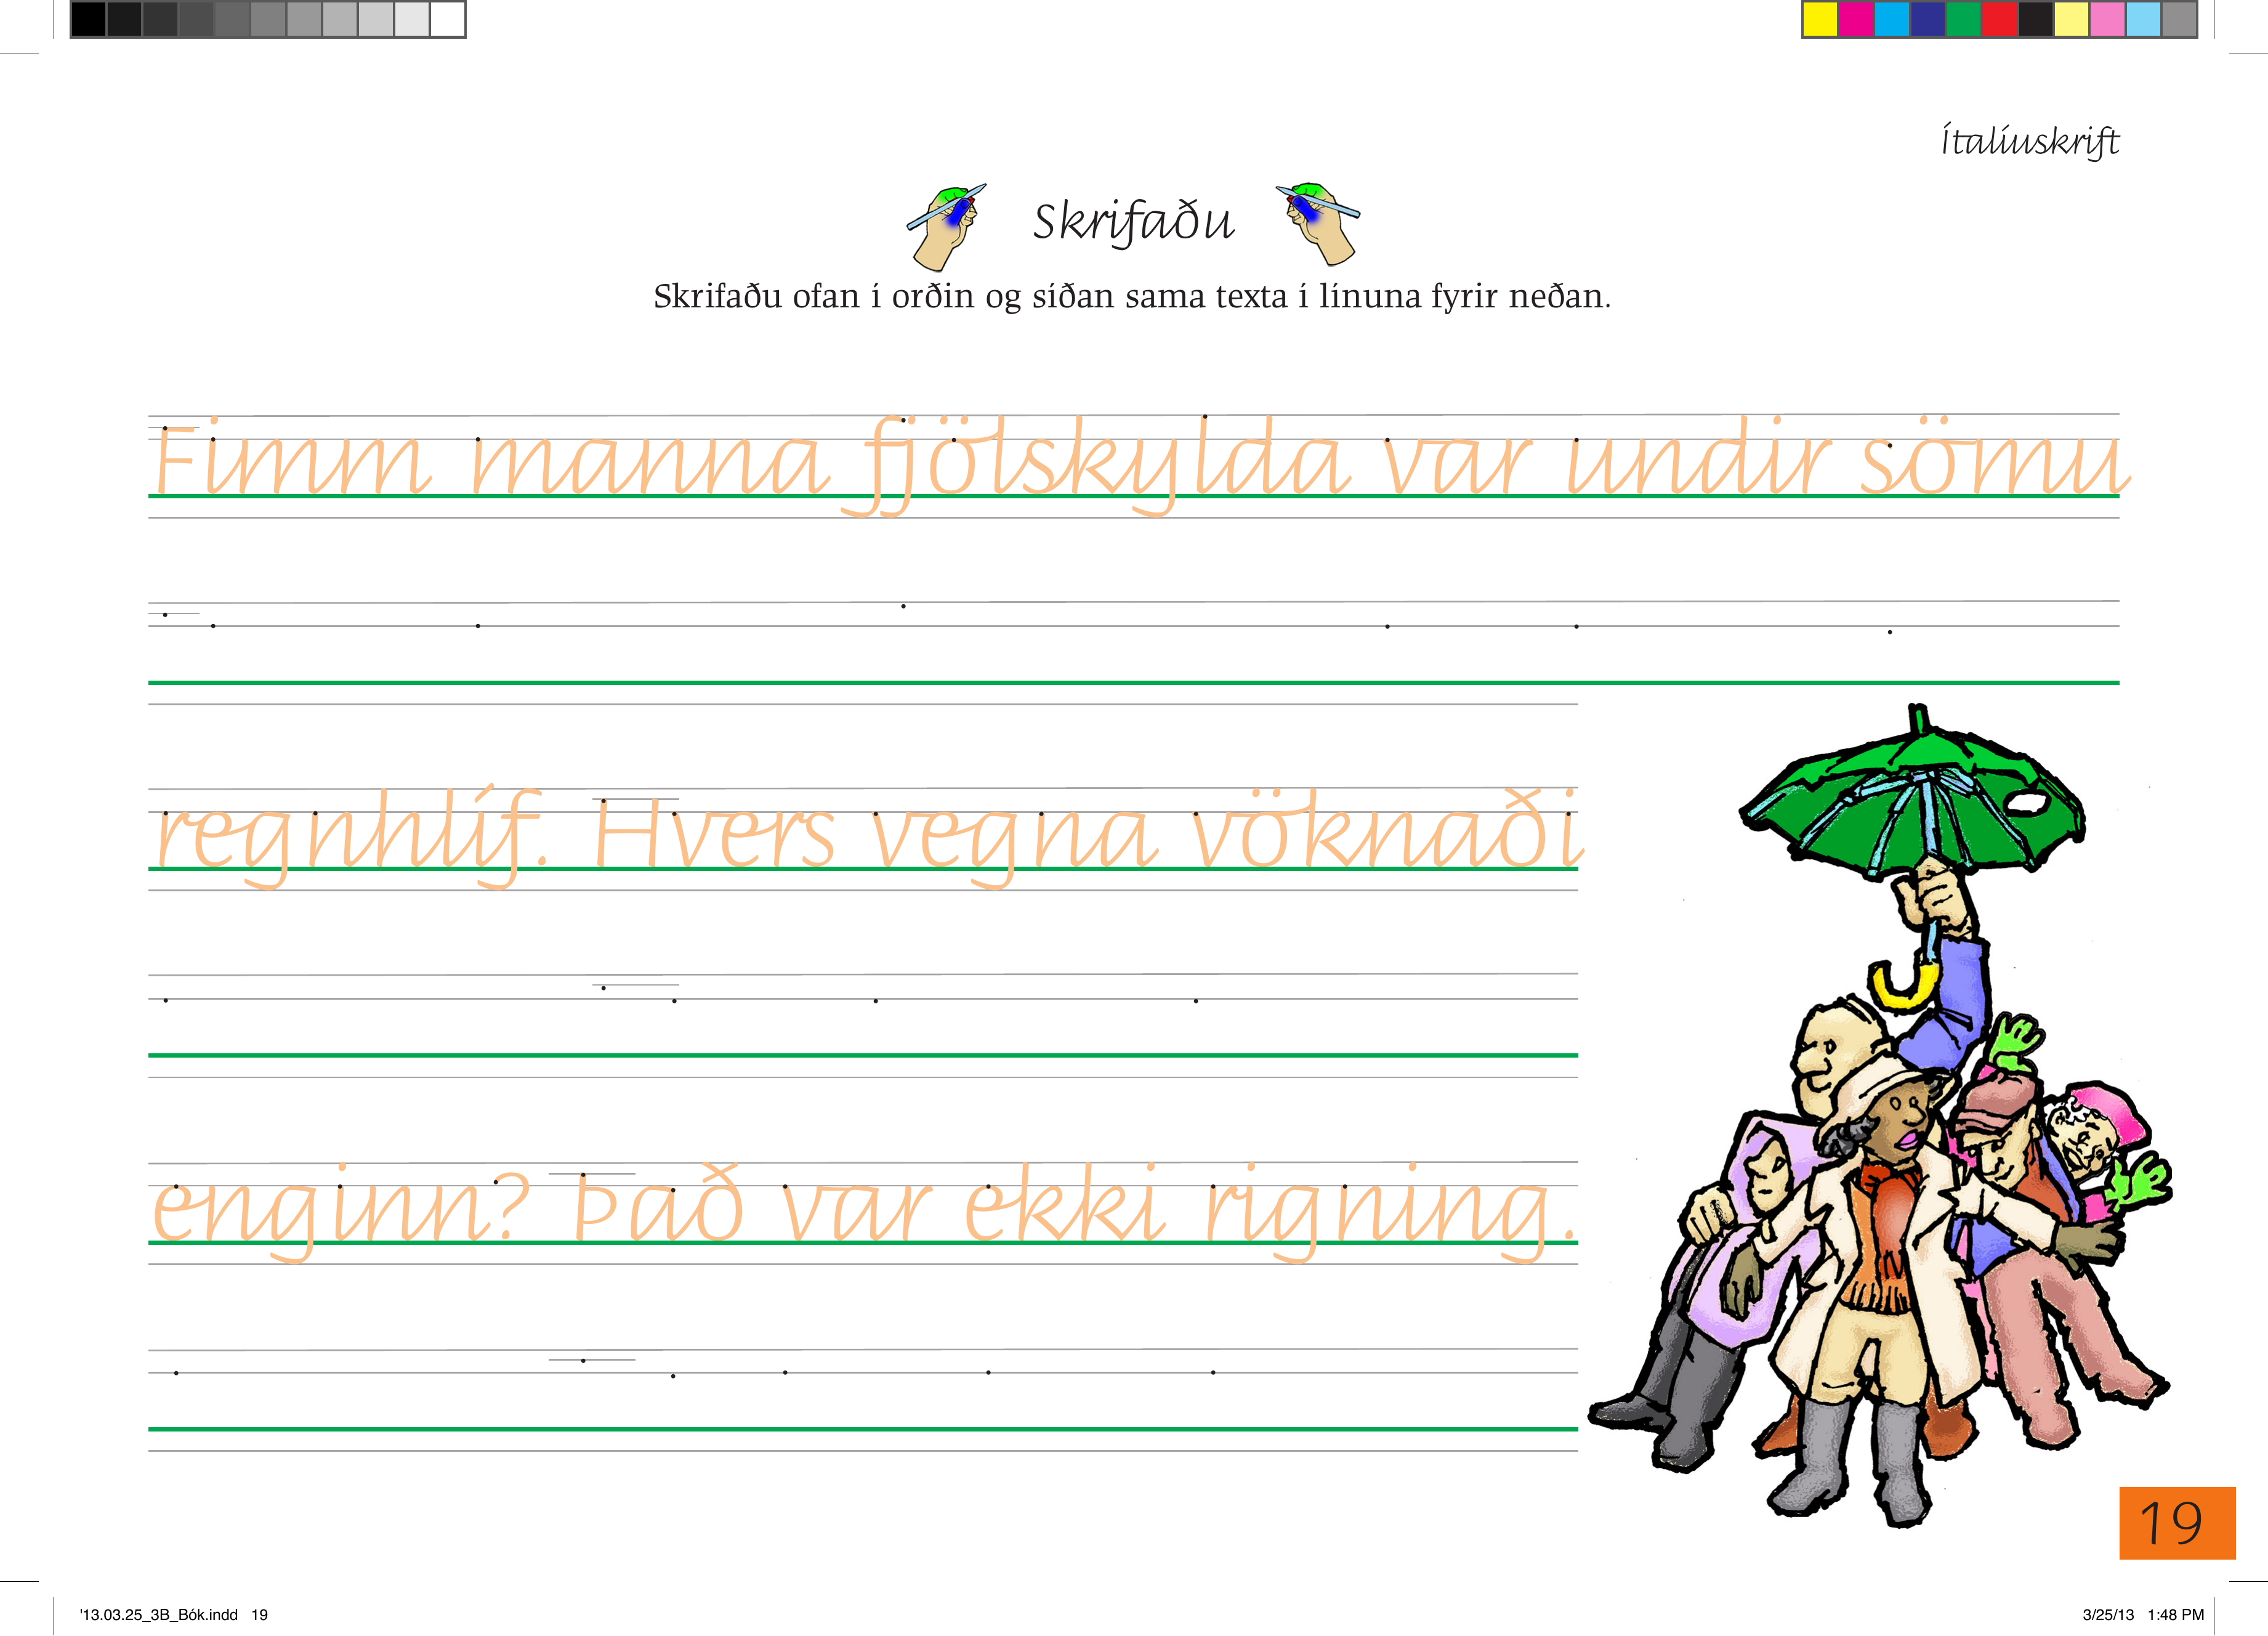 Ítalíuskrift
Skrifaðu
Skrifaðu ofan í orðin og síðan sama texta í línuna fyrir neðan.
Fimm manna fjölskylda var undir sömu
regnhlíf. Hvers vegna vöknaði
enginn? Það var ekki rigning.
19
'13.03.25_3B_Bók.indd 19
3/25/13 1:48 PM